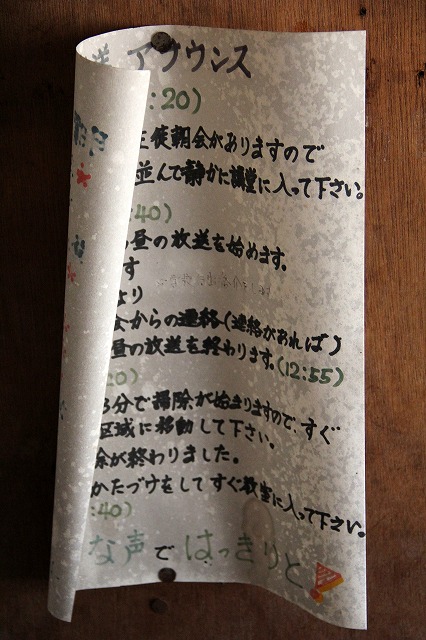 送 アナウンス
:20)
生徒朝会がありますので
並んで静かに講堂に入って下さい。
:40)
昼の放送を始めます。
す
より
からの連絡(連絡があれば)
昼の放送を終わります。(12:55)
:20)
3分で掃除が始まりますので、すぐ
区域に移動して下さい。
除が終わりました。
かたづけをしてすぐ教室に入って下さい。
:40)
な声ではっきりと!